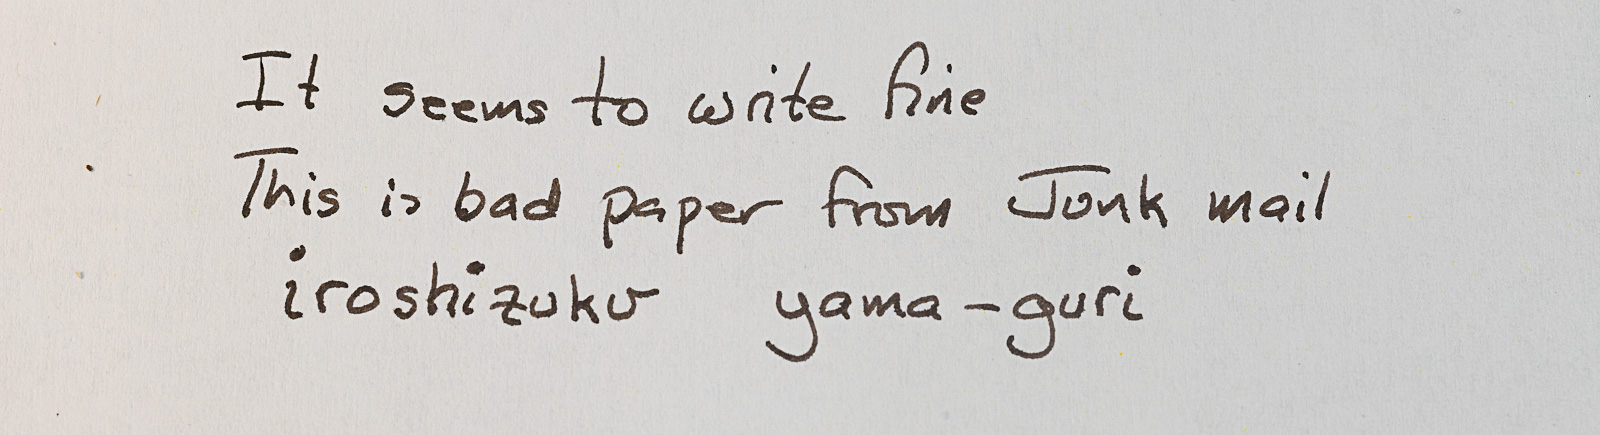 It seems to write fine
This is bad paper from Junk mail
iroshizuku yama-guri